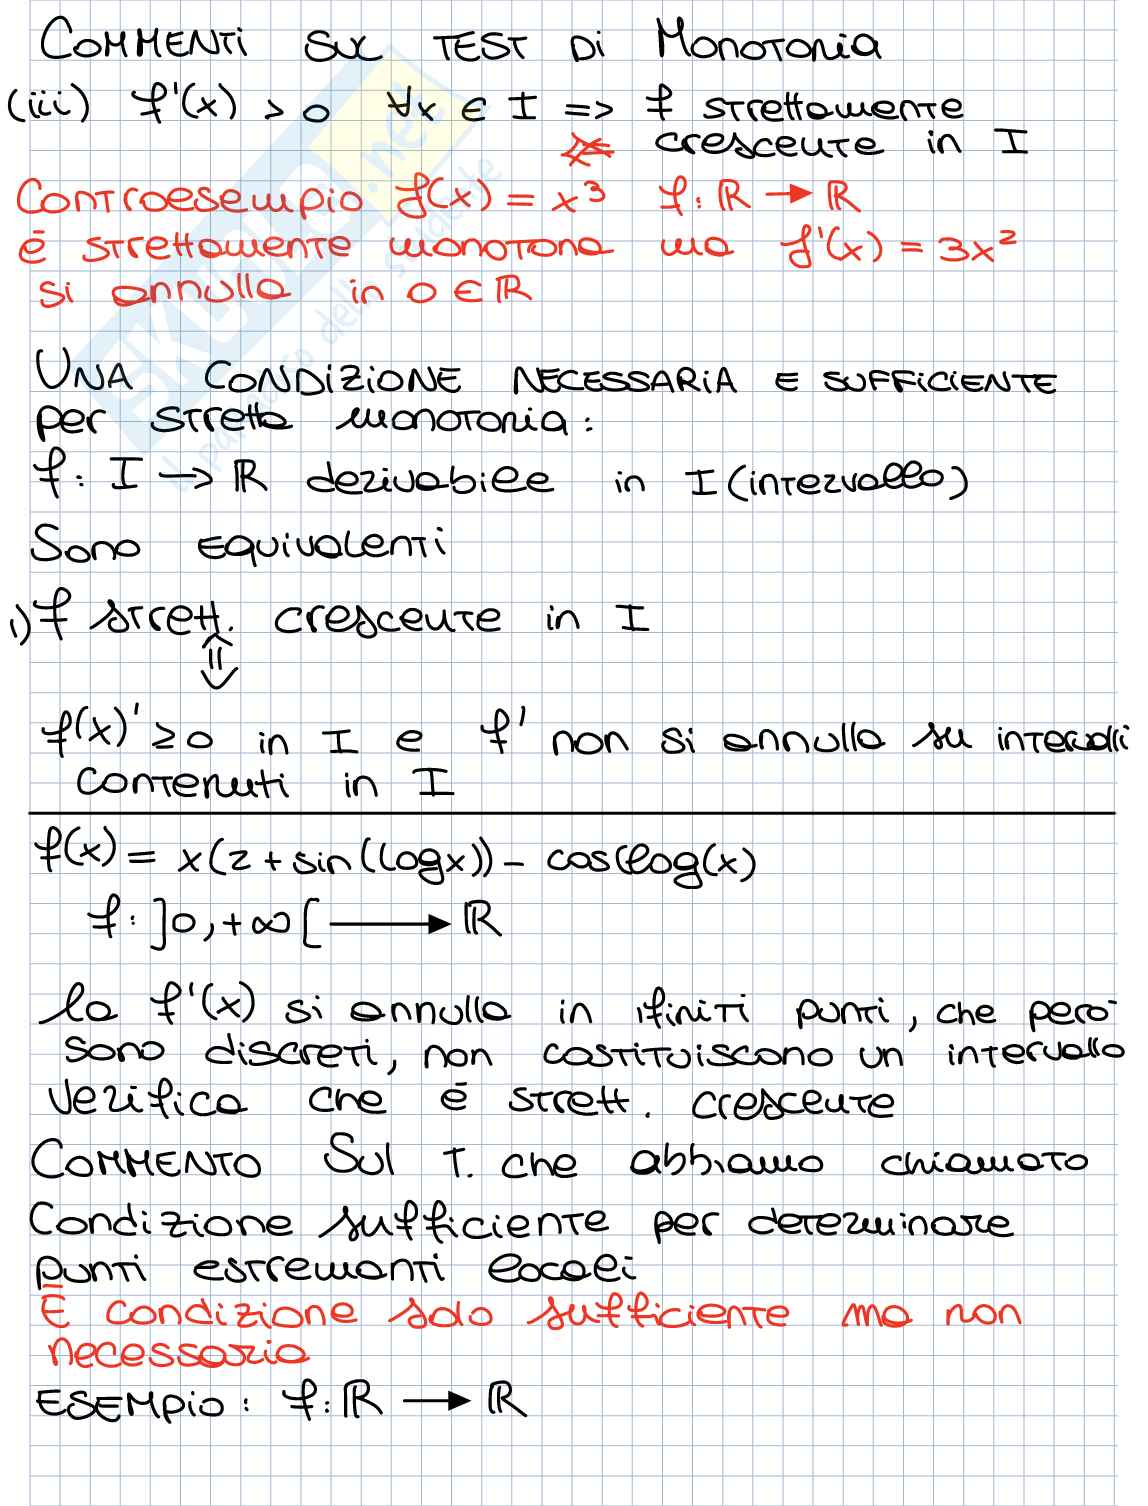 COMMENTI SUL TEST DI MONOTONIA
(iii) f'(x) > 0 ∀x ∈ I => f strettamente
crescente in I
Controesempio f(x) = x³ f: ℝ → ℝ
è strettamente monotona ma f'(x) = 3x²
si annulla in 0 ∈ ℝ
UNA CONDIZIONE NECESSARIA E SUFFICIENTE
per stretta monotonia:
f: I → ℝ derivabile in I (intervallo)
Sono equivalenti
i) f strett. crescente in I
⇕
f(x)' ≥ 0 in I e f' non si annulla su intervalli
contenuti in I
f(x) = x(2 + sin((logx)) - cos(log(x)
f: ]0, +∞[ → ℝ
la f'(x) si annulla in ifiniti punti, che però
sono discreti, non costituiscono un intervallo
verifica che è strett. crescente
COMMENTO Sul T. che abbiamo chiamato
Condizione sufficiente per determinare
punti estremanti locali
È condizione solo sufficiente ma non
necessaria
ESEMPIO: f: ℝ → ℝ
SKUOLA.net
il paradiso dello studente